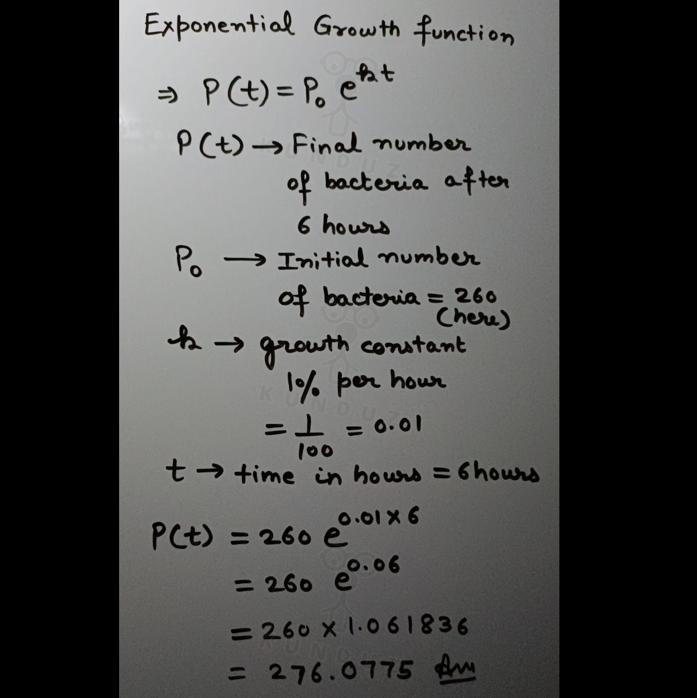 Exponential Growth function
⇒ P(t) = P₀ e^kt
P(t) → Final number
of bacteria after
6 hours
P₀ → Initial number
of bacteria = 260
(here)
k → growth constant
1% per hour
= 1/100 = 0.01
t → time in hours = 6hours
P(t) = 260 e^0.01×6
= 260 e^0.06
= 260 × 1.061836
= 276.0775 Ans
KUNDUZ
KUNDUZ
KUNDUZ